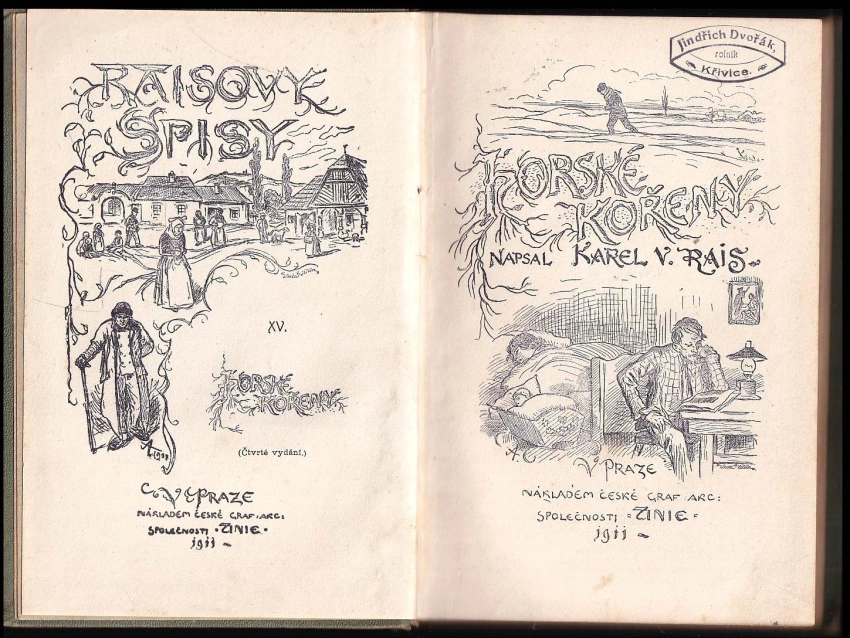 RAISOVY
SPISY
XV.
HORSKÉ
KOŘENY
(Čtvrté vydání.)
V PRAZE
NÁKLADEM ČESKÉ GRAF. AKC:
SPOLEČNOSTI •UNIE•
1911
Jindřich Dvořák,
rolník
Křivice.
HORSKÉ
KOŘENY
NAPSAL KAREL V. RAIS
V PRAZE
NÁKLADEM ČESKÉ GRAF AKC:
SPOLEČNOSTI •UNIE•
1911